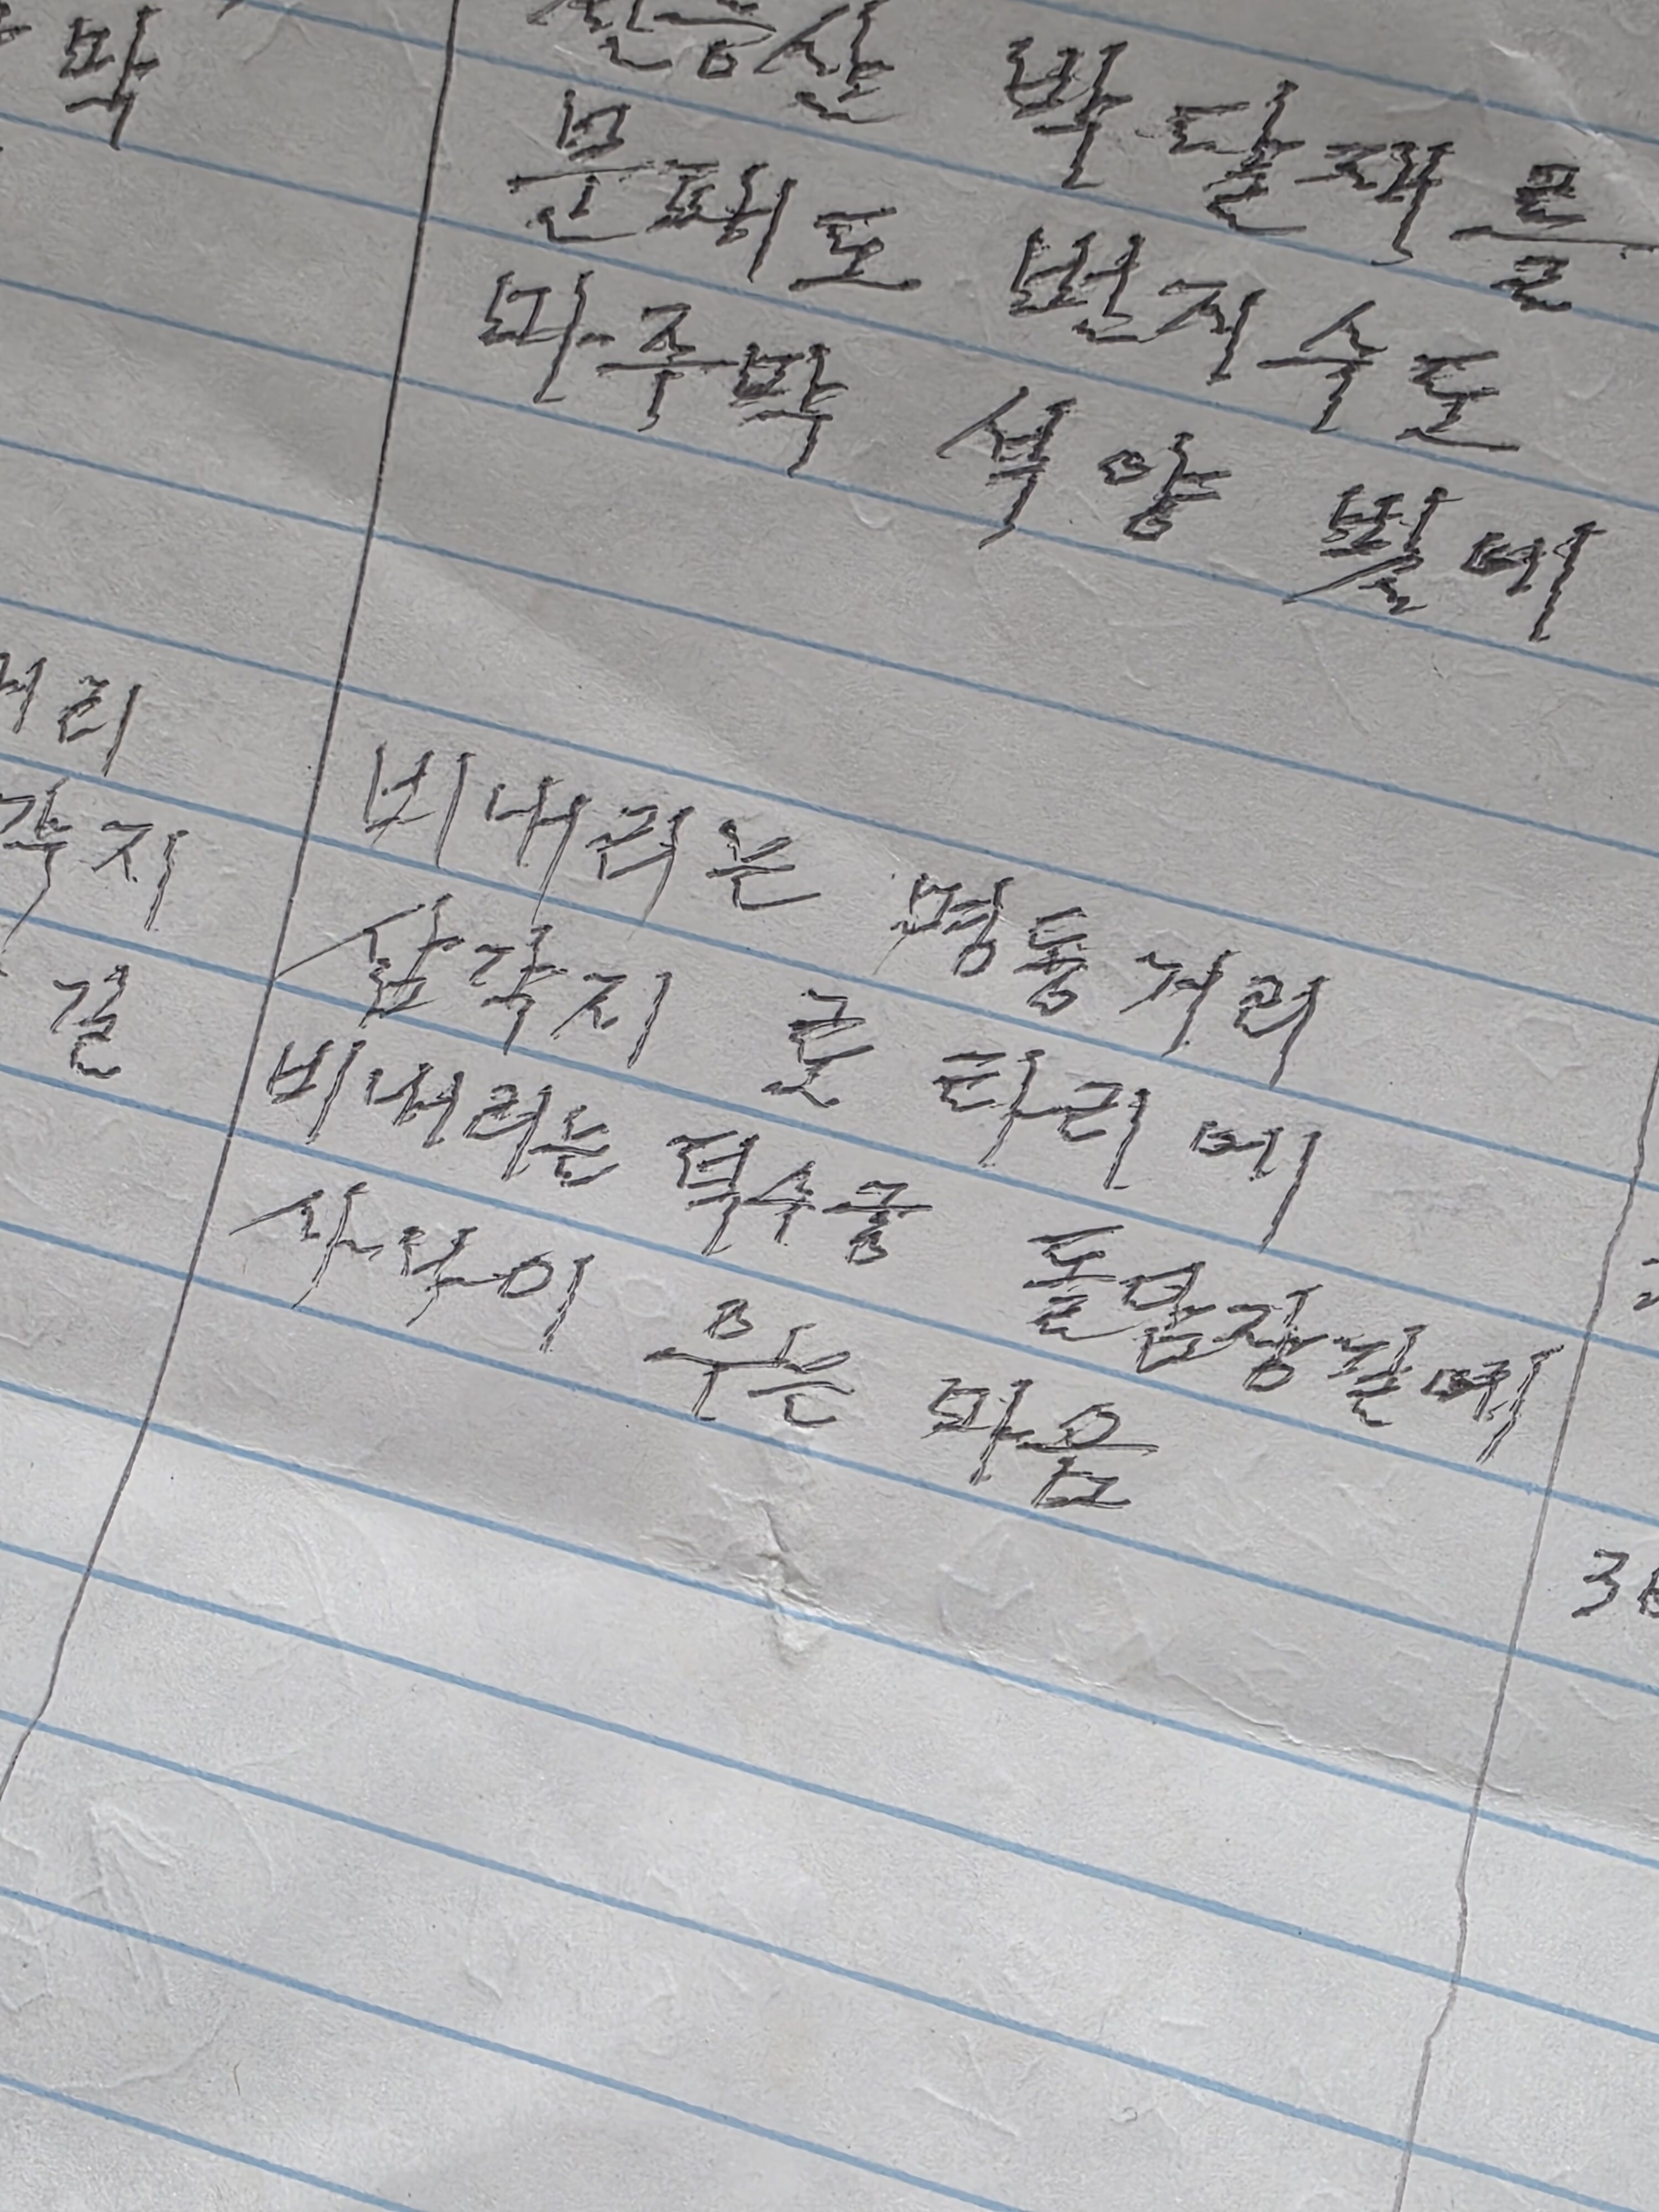 박
천등산 박달재를
문패도 번지수도
마주막 석양 빛에
거리
각지
길
비내리는 명동거리
삼각지 로타리에
비내리는 덕수궁 돌담장길에
사나이 우는 마음